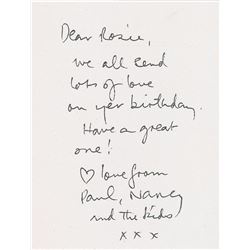 Dear Rosie,
we all send
lots of love
on yer birthday.
Have a great
one!
♡ love from
Paul, Nancy
and the kids
x x x